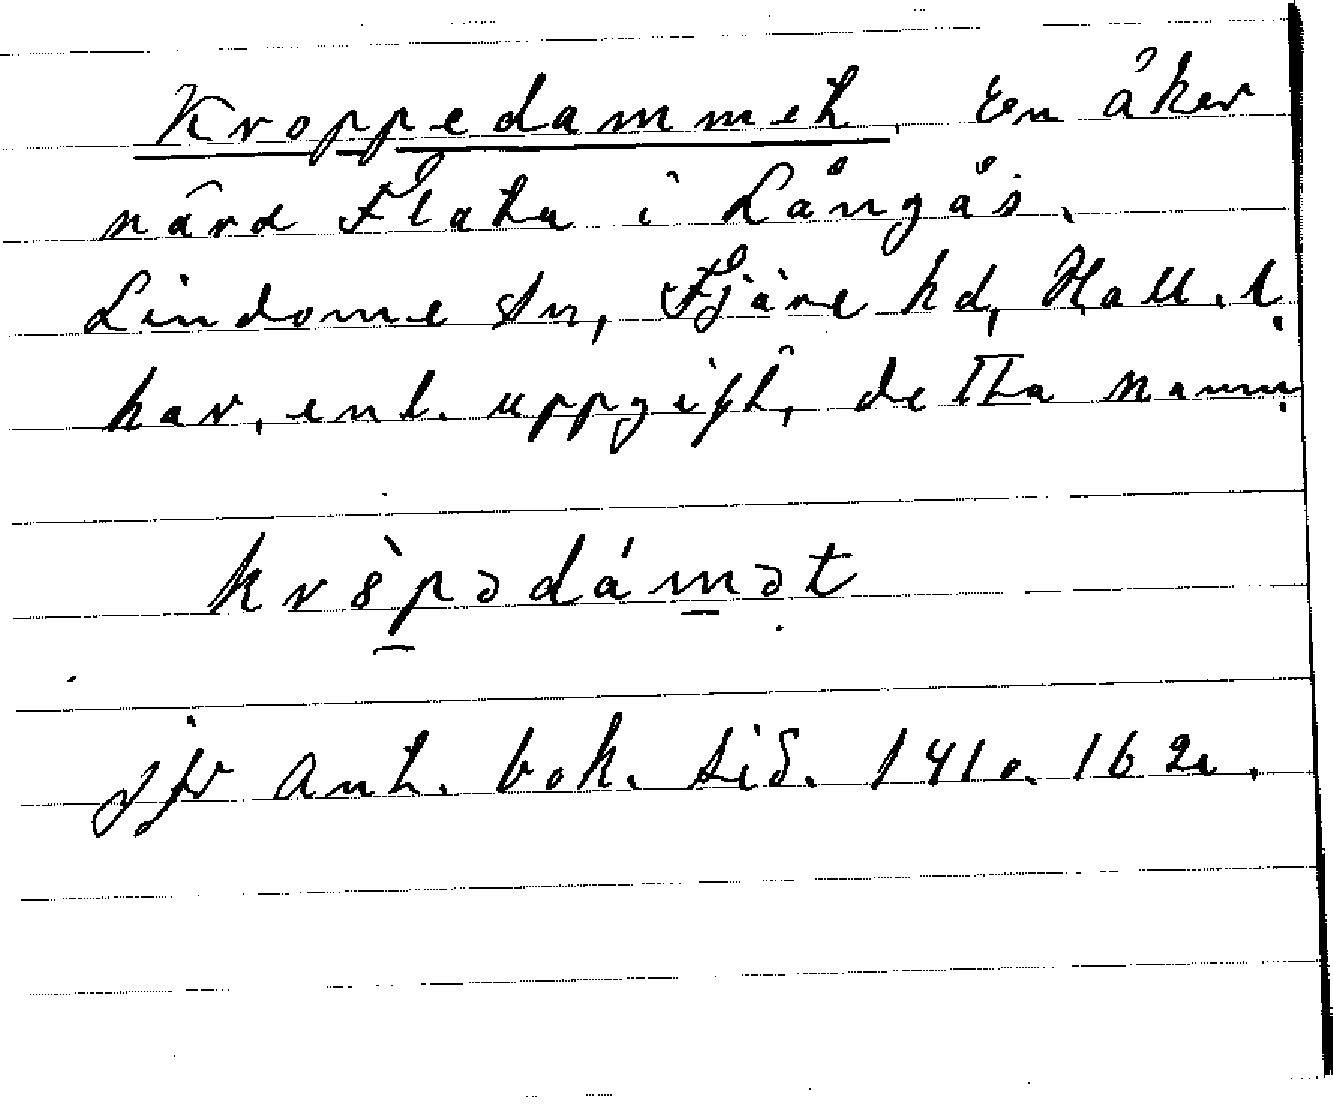 Kroppedammet. En åker
nära Flata i Långås.
Lindome sn, Fjäre hd, Hall. l.
har, enl. uppgift, detta namn.
krȣ̀pədámət
jfr Ant. bok. sid. 141 o. 162.